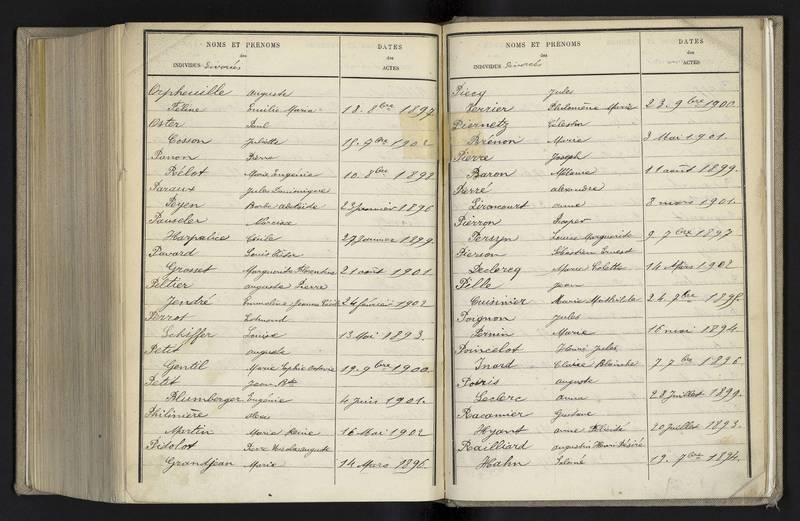 NOMS ET PRÉNOMS
des
INDIVIDUS Divorcés
DATES
des
ACTES
Orpheuille Auguste
Féline Emilie Maria 18. 8bre 1897
Oster Paul
Cosson Juliette 15. 9bre 1902
Panon Pierre
Rélot Marie Eugénie 10. 8bre 1892
Paraux Jules Dominique
Peyen Barbe Adélaïde 23 janvier 1896
Pauseler Narcisse
Harpalice Cécile 27 Janvier 1899.
Pavard Louis Victor
Grosset Marguerite 21 août 1901.
Peltier Auguste Pierre
Jendré Jeanne 24 février 1902
Perrot Edmond
Schiffer Louise 13 Mai 1893.
Petit Auguste
Gentil Marie Sophie Octavie 19. 9bre 1900.
Petit Jean Bte
Blumberger Eugénie 4 Juin 1901.
Philinière
Martin Marie Reine 16 Mai 1902
Pidolot Pierre Nicolas Auguste
Grandjean Marie 14 Mars 1896.
NOMS ET PRÉNOMS
des
INDIVIDUS Divorcés
DATES
des
ACTES
Piecy Jules
Verrier Philomène Marie 23. 9bre 1900.
Piernetz Célestin
Brénon Maria 3 Mai 1901.
Pierre Joseph
Baron 11 août 1899.
Pierré Alexandre
Lironcourt Anne 8 mars 1901.
Pierron Prosper
Persyn Louise Marguerite 9. 7bre 1897
Pierson Sébastien Ernest
Declercq Marie Colette 14 Mars 1902
Pille Jean
Cuisinier Marie Mathilde 24. 7bre
Poignon Jules
Pernin Marie 16 mai 1894.
Poincelot Henri Jules
Inard Claire Blanche 7 7bre 1896
Poiris Auguste
Leclerc Anna 28 Juillet 1899.
Racamier Gustave
Hyant Anne 20 Juillet 1893.
Railliard Augustin Henri Désiré
Hahn Salomé 19. 7bre 1894.